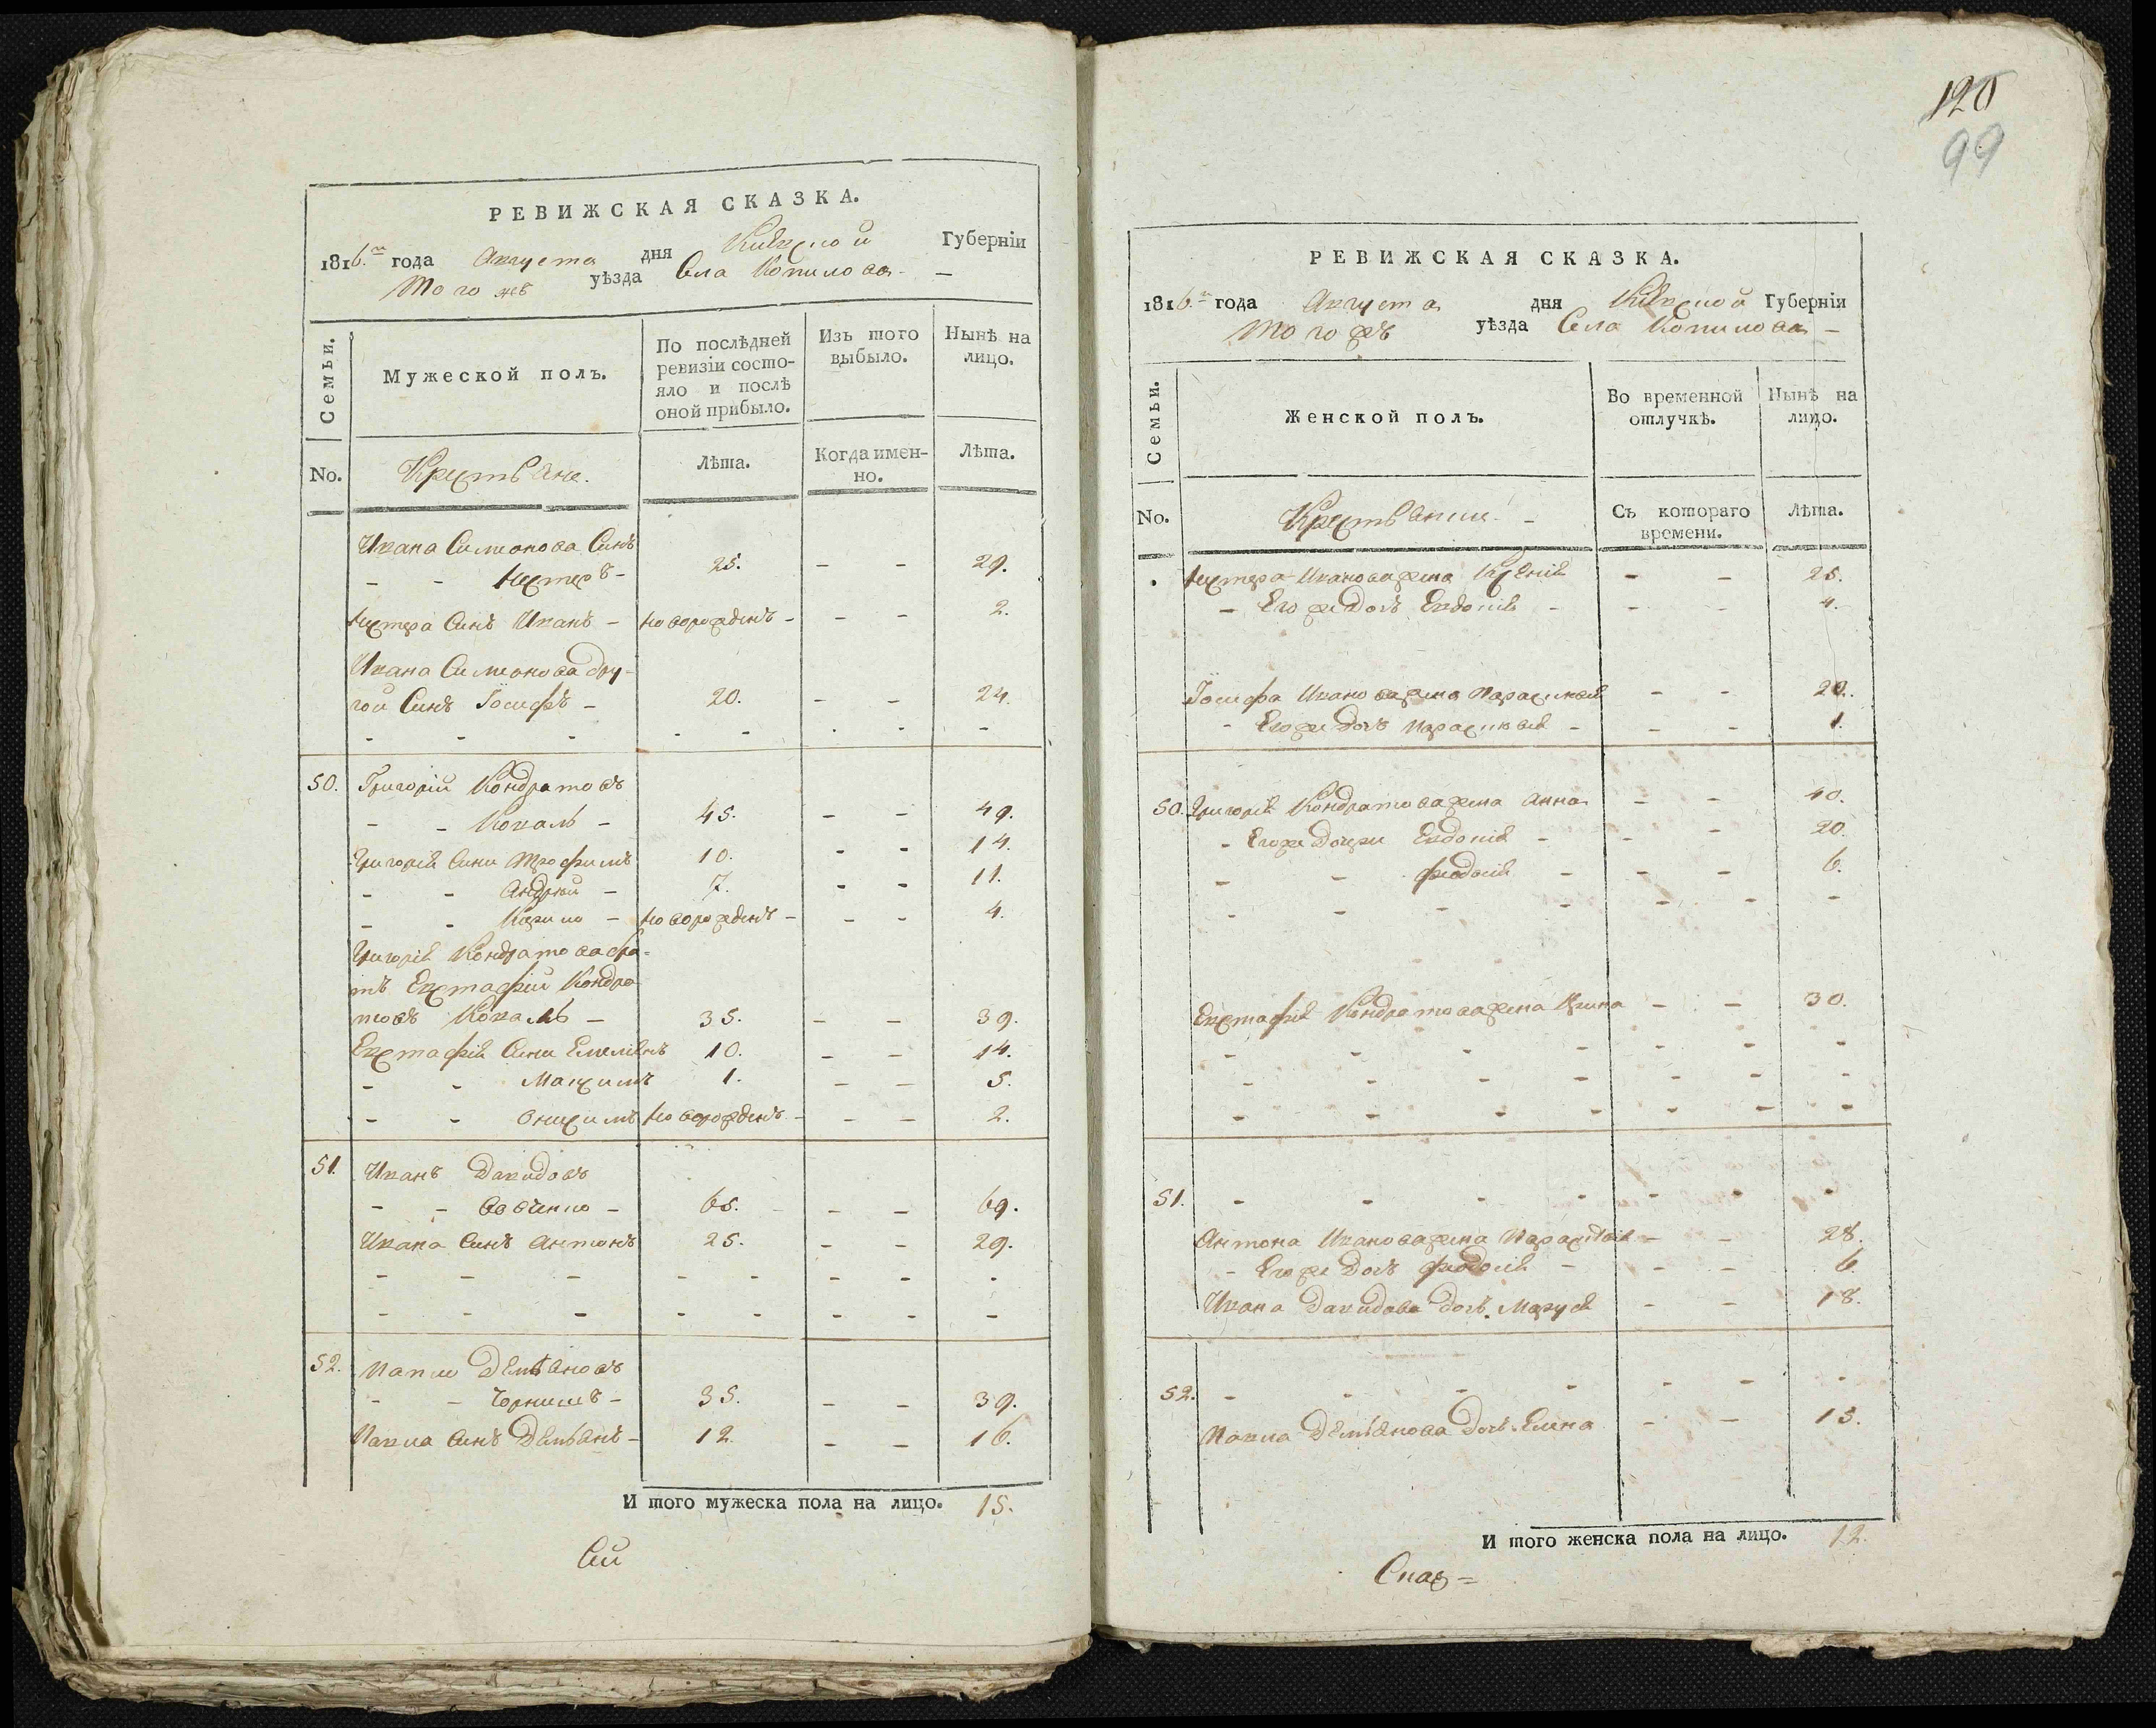 РЕВИЖСКАЯ СКАЗКА.
1816.го года Августа дня Киевской Губерніи
Того жъ уѣзда Села Копилова
Семьи.
Мужеской полъ.
По послѣдней ревизіи состо-
яло и послѣ оной прибыло.
Изъ того выбыло.
Нынѣ на лицо.
No.
Крестьяне.
Лѣта.
Когда имен-
но.
Лѣта.
Ивана Симонова Синъ
- - Нестеръ - 25. - - 29.
Нестера Синъ Иванъ - Новорожденъ - - - 2.
Ивана Симонова дру-
гой Синъ Іосифъ - 20. - - 24.
50. Григорій Кондратовъ
- - Коваль - 45. - - 49.
Григорія Сини Трофимъ 10. - - 14.
- - Андрей - 7. - - 11.
- - Кирило - Новорожденъ - - - 4.
Григорія Кондратова бра-
тъ Евстафій Кондра
товъ Коваль - 35. - - 39.
Евстафія Сини Емеліянъ 10. - - 14.
- - Максимъ 1. - - 5.
- - Онисимъ Новорожденъ - - - 2.
51. Иванъ Давидовъ
- - Савченко - 65. - - 69.
Ивана Синъ Антонъ 25. - - 29.
52. Павло Демьяновъ
- - Чорнишъ - 35. - - 39.
Павла Синъ Демьянъ - 12. - - 16.
И того мужеска пола на лицо. 15.
Сій
120
99
РЕВИЖСКАЯ СКАЗКА.
1816.го года Августа дня Киевской Губерніи
Того жъ уѣзда Села Копилова -
Семьи.
Женской полъ.
Во временной отлучкѣ.
Нынѣ на лицо.
No.
Крестьянки. -
Съ котораго времени.
Лѣта.
Нестера Иванова жена Ксенія - - 25.
- Его же Дочь Евдокія - - - 4.
Іосифа Иванова жена Параскевія - - 20.
- Его же Дочь Параскевія - - - 1.
50. Григорія Кондратова жена Анна - - 40.
- Его же Дочери Евдокія - - - 20.
- - Феодосія - - - 6.
Евстафія Кондратова жена Ирина - - 30.
51. - - - - - - -
Антона Иванова жена Параскевія - - 28.
- Его же Дочь Феодосія - - - 6.
Ивана Давидова дочь Маруся - - 18.
52. - - - - - - -
Павла Демьянова Дочь Елена - - 13.
И того женска пола на лицо. 12.
Сказ=